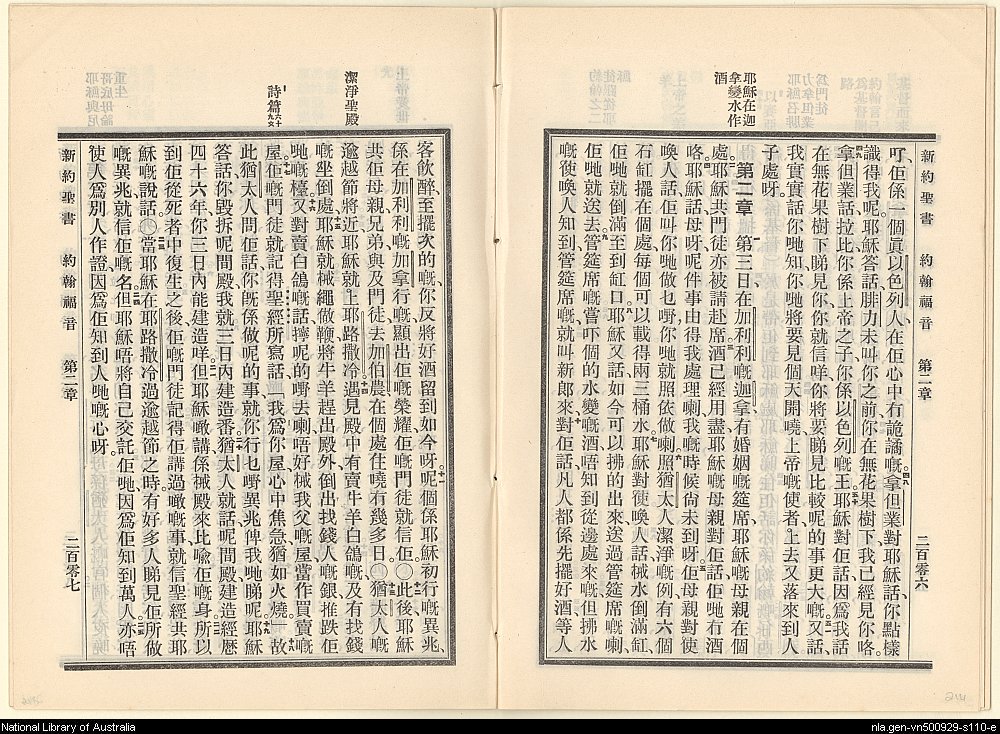 耶穌在迦
拿變水作
酒
新約聖書 約翰福音 第二章 二百零六
吖、佢係一個眞以色列人、在佢心中有詭譎嘅。四八拿但業對耶穌話、你點樣
四九識得我呢。耶穌答話、腓力未叫你之前、你在無花果樹下、我已經見你咯。
拿但業話、拉比、你係上帝之子、你係以色列嘅王。五十耶穌對佢話、因爲我話
在無花果樹下睇見你、你就信咩、你將要睇見比較呢的事更大嘅。五一又話、
我實實話你哋知、你哋將要見個天開曉、上帝嘅使者、上去又落來到人
子處呀。
第二章 一第三日、在加利利嘅迦拿、有婚姻嘅筵席、耶穌嘅母親在個
處。二耶穌共門徒亦被請赴席。三酒已經用盡、耶穌嘅母親對佢話、佢哋冇酒
咯。四耶穌話、母呀、呢件事由得我處理喇、我嘅時候尙未到呀。五佢母親對使
喚人話、佢叫你哋做乜嘢、你哋就照依做喇。六照猶太人潔淨嘅例、有六個
石缸擺在個處、每個可以載得兩三桶水。七耶穌對使喚人話、械水倒滿缸、
佢哋就倒滿至到缸口。八耶穌又話、如今可以拂的出來、送過管筵席嘅喇、
佢哋就送去。九管筵席嘅嘗吓個的水變嘅酒、唔知到從邊處來嘅、但拂水
嘅使喚人知到、管筵席嘅就叫新郎來、十對佢話、凡人都係先擺好酒、等人
潔淨聖殿
詩篇六十九 九
客飮醉、至擺次的嘅、你反將好酒留到如今呀。十一呢個係耶穌初行嘅異兆、
係在加利利嘅加拿行嘅、顯出佢嘅榮耀、佢嘅門徒就信佢。〇十二此後、耶穌
共佢母親、兄弟、與及門徒、去加伯農、在個處住曉有幾多日。〇十三猶太人嘅
逾越節將近、耶穌就上耶路撒冷、十四遇見殿中有賣牛羊白鴿嘅、及有找錢
嘅坐倒處、十五耶穌就械繩做鞭、將牛羊趕出殿外、倒出找錢人嘅銀、推跌佢
哋嘅檯。十六又對賣白鴿嘅話、擰呢的嘢去喇、唔好械我父嘅屋、當作買賣嘅
屋。十七佢嘅門徒就記得聖經所寫話、「我爲你屋、心中焦急、猶如火燒。」十八故
此猶太人問佢話、你旣係做呢的事、就你行乜嘢異兆俾我哋睇呢。十九耶穌
答話、你毀拆呢間殿、我就三日內建造番。二十猶太人就話、呢間殿建造經歷
四十六年、你三日內能建造咩。二一但耶穌噉講、係械殿來比喩佢嘅身、二二所以
到佢從死者中復生之後、佢嘅門徒記得佢講過噉嘅事、就信聖經共耶
穌嘅說話。〇二三當耶穌在耶路撒冷過逾越節之時、有好多人睇見佢所做
嘅異兆、就信佢嘅名。二四但耶穌唔將自己交託佢哋、因爲佢知到萬人、二五亦唔
使人爲別人作證、因爲佢知到人哋嘅心呀。
新約聖書 約翰福音 第二章 二百零七
National Library of Australia
nla.gen-vn500929-s110-e